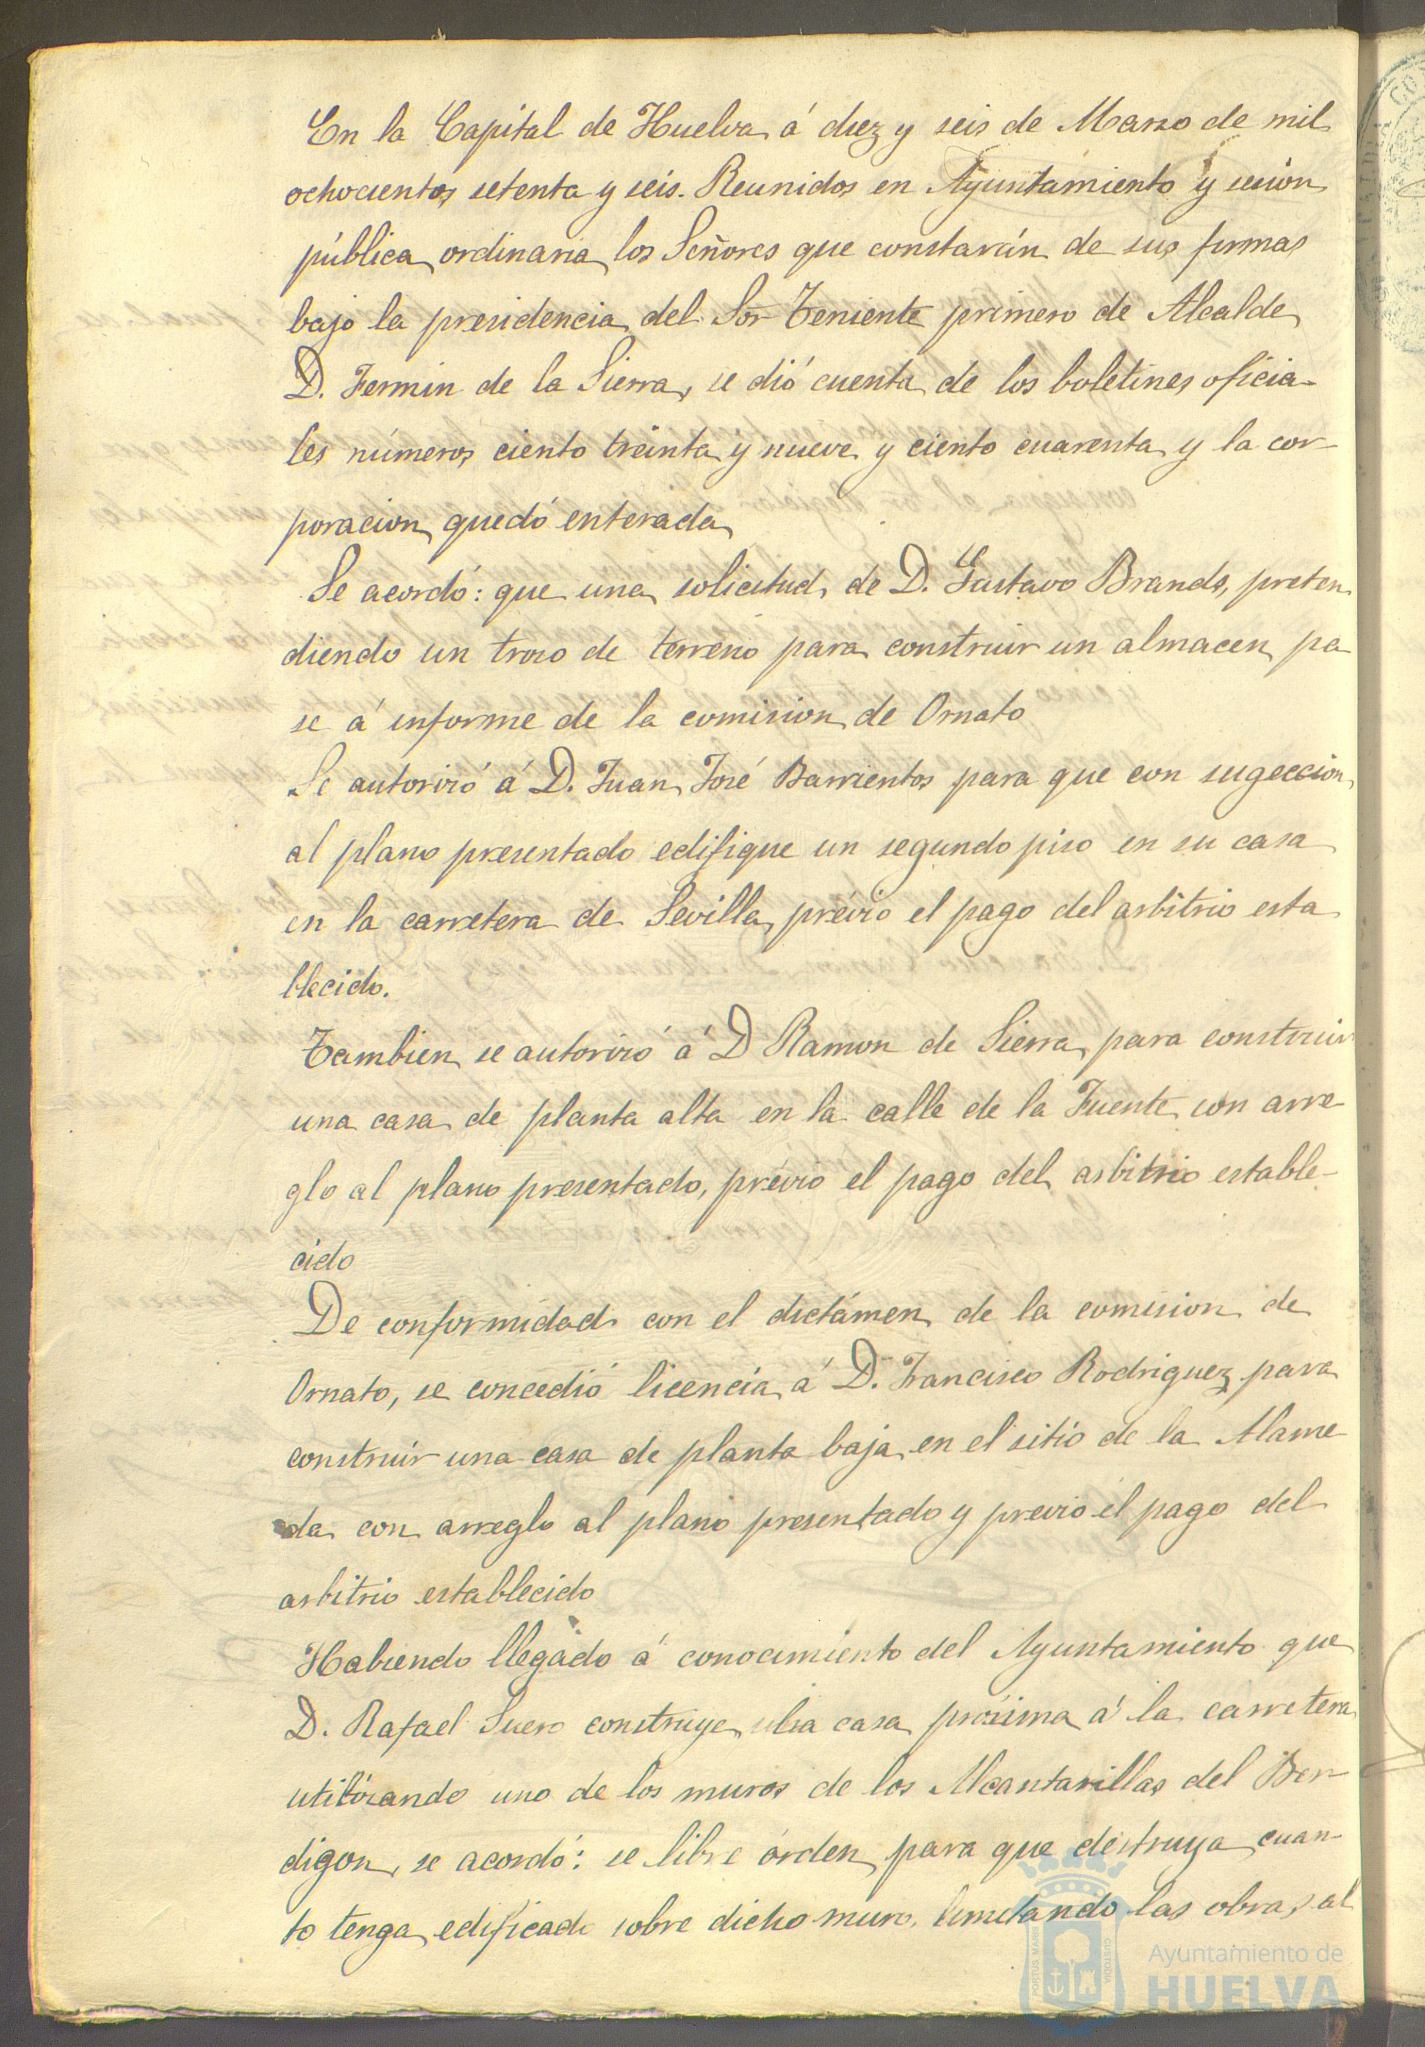 En la Capital de Huelva á diez y seis de Marzo de mil
ochocientos setenta y seis. Reunidos en Ayuntamiento y sesion
pública ordinaria los Señores que constarán de sus firmas
bajo la presidencia del Sor Teniente primero de Alcalde
D. Fermin de la Sierra, se dió cuenta de los boletines oficia-
les números ciento treinta y nueve y ciento cuarenta y la cor-
poracion quedó enterada
Se acordó: que una solicitud de D. Gustavo Brands, preten
diendo un trozo de terreno para construir un almacen pa
se á informe de la comision de Ornato
Se autorizó á D. Juan José Barrientos para que con sugeccion
al plano presentado edifique un segundo piso en su casa
en la carretera de Sevilla, prévio el pago del arbitrio esta
blecido.
Tambien se autorizó á D Ramon de Sierra para construir
una casa de planta alta en la calle de la Fuente con arre-
glo al plano presentado, prévio el pago del arbitrio estable-
cido
De conformidad con el dictámen de la comision de
Ornato, se concedió licencia á D. Francisco Rodriguez para
construir una casa de planta baja en el sitio de la Alame
da con arreglo al plano presentado y previo el pago del
arbitrio establecido
Habiendo llegado á conocimiento del Ayuntamiento que
D. Rafael Suero construye una casa prósima á la carretera
utilizando uno de los muros de los Alcantarillas del Ber-
digon, se acordó: se libre órden para que destruya cuan-
to tenga edificado sobre dicho muro, limitando las obras al
Ayuntamiento de
HUELVA